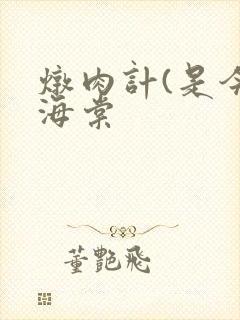 燉肉計(是今
海棠
董艷飛